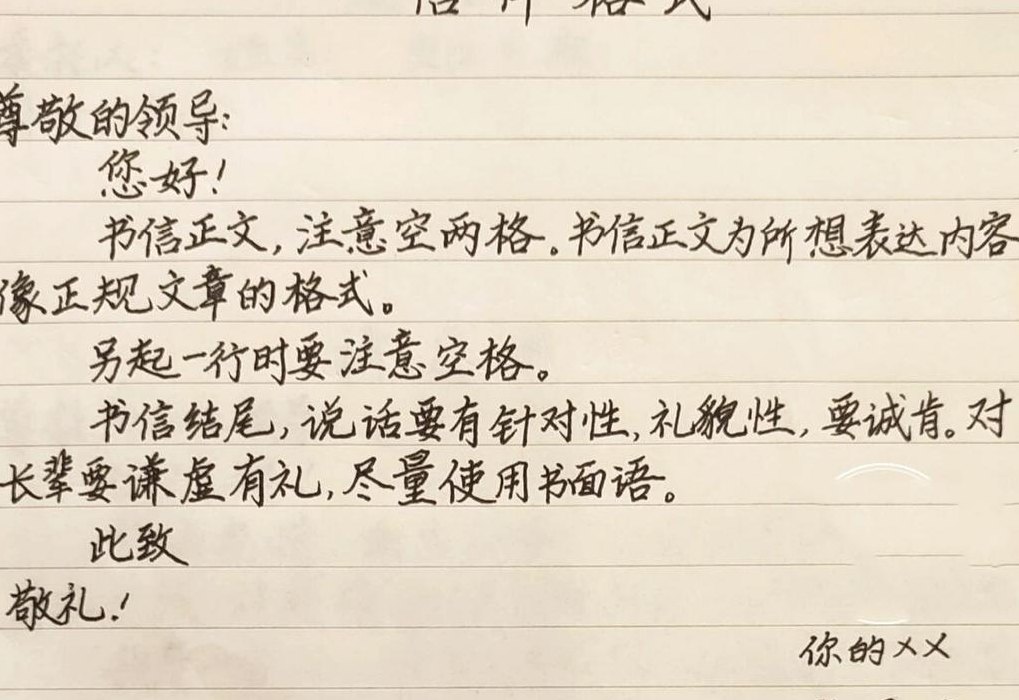 信件格式
尊敬的领导:
您好!
书信正文,注意空两格。书信正文为所想表达内容
像正规文章的格式。
另起一行时要注意空格。
书信结尾,说话要有针对性,礼貌性,要诚肯。对
长辈要谦虚有礼,尽量使用书面语。
此致
敬礼!
你的××